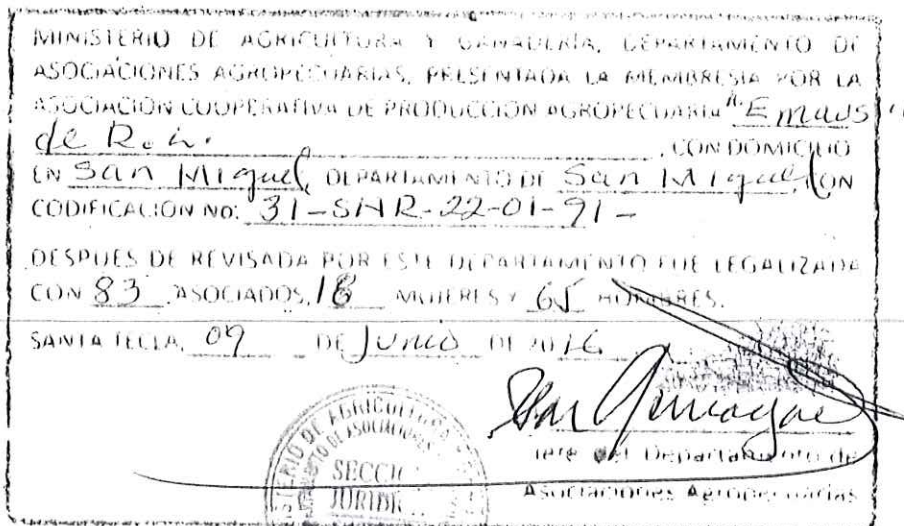 MINISTERIO DE AGRICULTURA Y GANADERÍA, DEPARTAMENTO DE
ASOCIACIONES AGROPECUARIAS, PRESENTADA LA MEMBRESIA POR LA
ASOCIACION COOPERATIVA DE PRODUCCION AGROPECUARIA "Emaus"
de R. L. , CON DOMICILIO
EN San Miguel, DEPARTAMENTO DE San Miguel, CON
CODIFICACION NO: 31-SNR-22-01-91-
DESPUES DE REVISADA POR ESTE DEPARTAMENTO FUE LEGALIZADA
CON 83 ASOCIADOS, 18 MUJERES Y 65 HOMBRES.
SANTA TECLA, 09 DE Junio DE 2016
Jefe del Departamento de
Asociaciones Agropecuarias
DE AGRICULTURA
DE ASOCIACIONES
SECCI
JURIDI